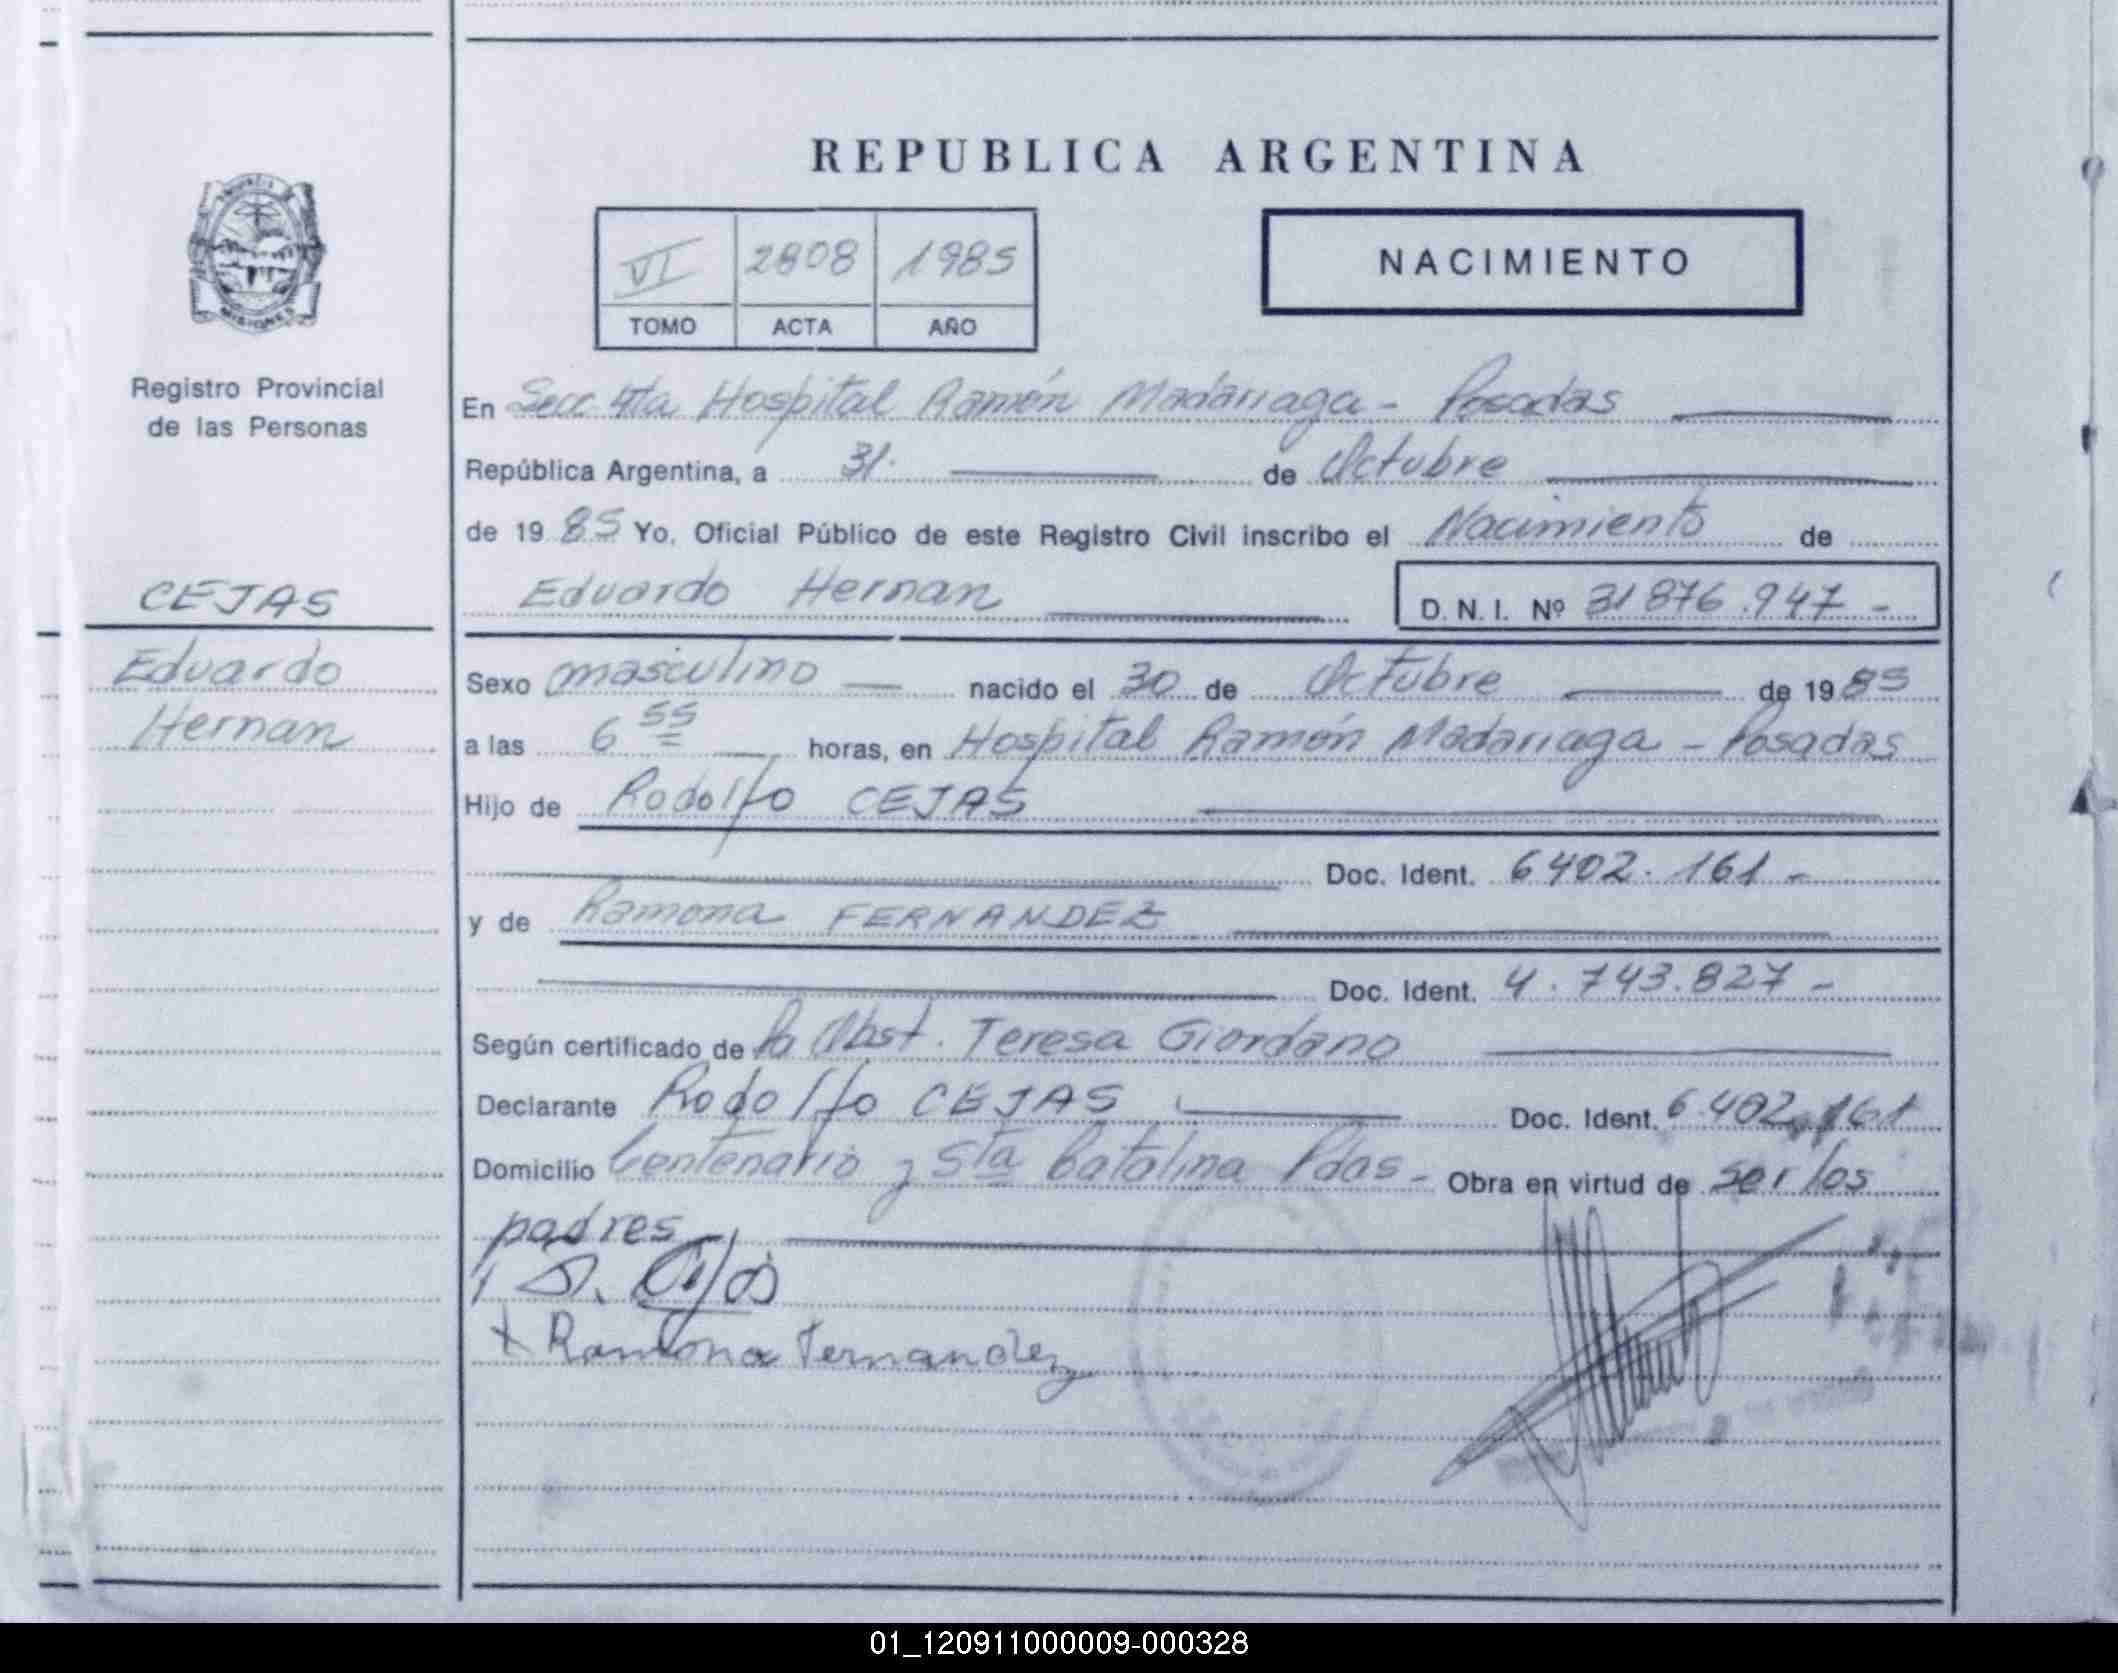 REPUBLICA ARGENTINA
VI 2808 1985
TOMO ACTA AÑO
NACIMIENTO
MISIONES
Registro Provincial
de las Personas
CEJAS
Eduardo
Hernan
En Secc. 4ta Hospital Ramón Madariaga - Posadas
República Argentina, a 31. de Octubre
de 19 85 Yo, Oficial Público de este Registro Civil inscribo el Nacimiento de
Eduardo Hernan D. N. I. Nº 31876.947 -
Sexo masculino nacido el 30 de Octubre de 19 85
a las 6 55 horas, en Hospital Ramón Madariaga - Posadas
Hijo de Rodolfo CEJAS
Doc. Ident. 6402.161 -
y de Ramona FERNANDEZ
Doc. Ident. 4.743.827 -
Según certificado de la Obst. Teresa Giordano
Declarante Rodolfo CEJAS Doc. Ident. 6.402.161
Domicilio Centenario y Sta Catalina Pdas - Obra en virtud de ser los
padres
R. Cejas
x Ramona Fernandez
01_120911000009-000328